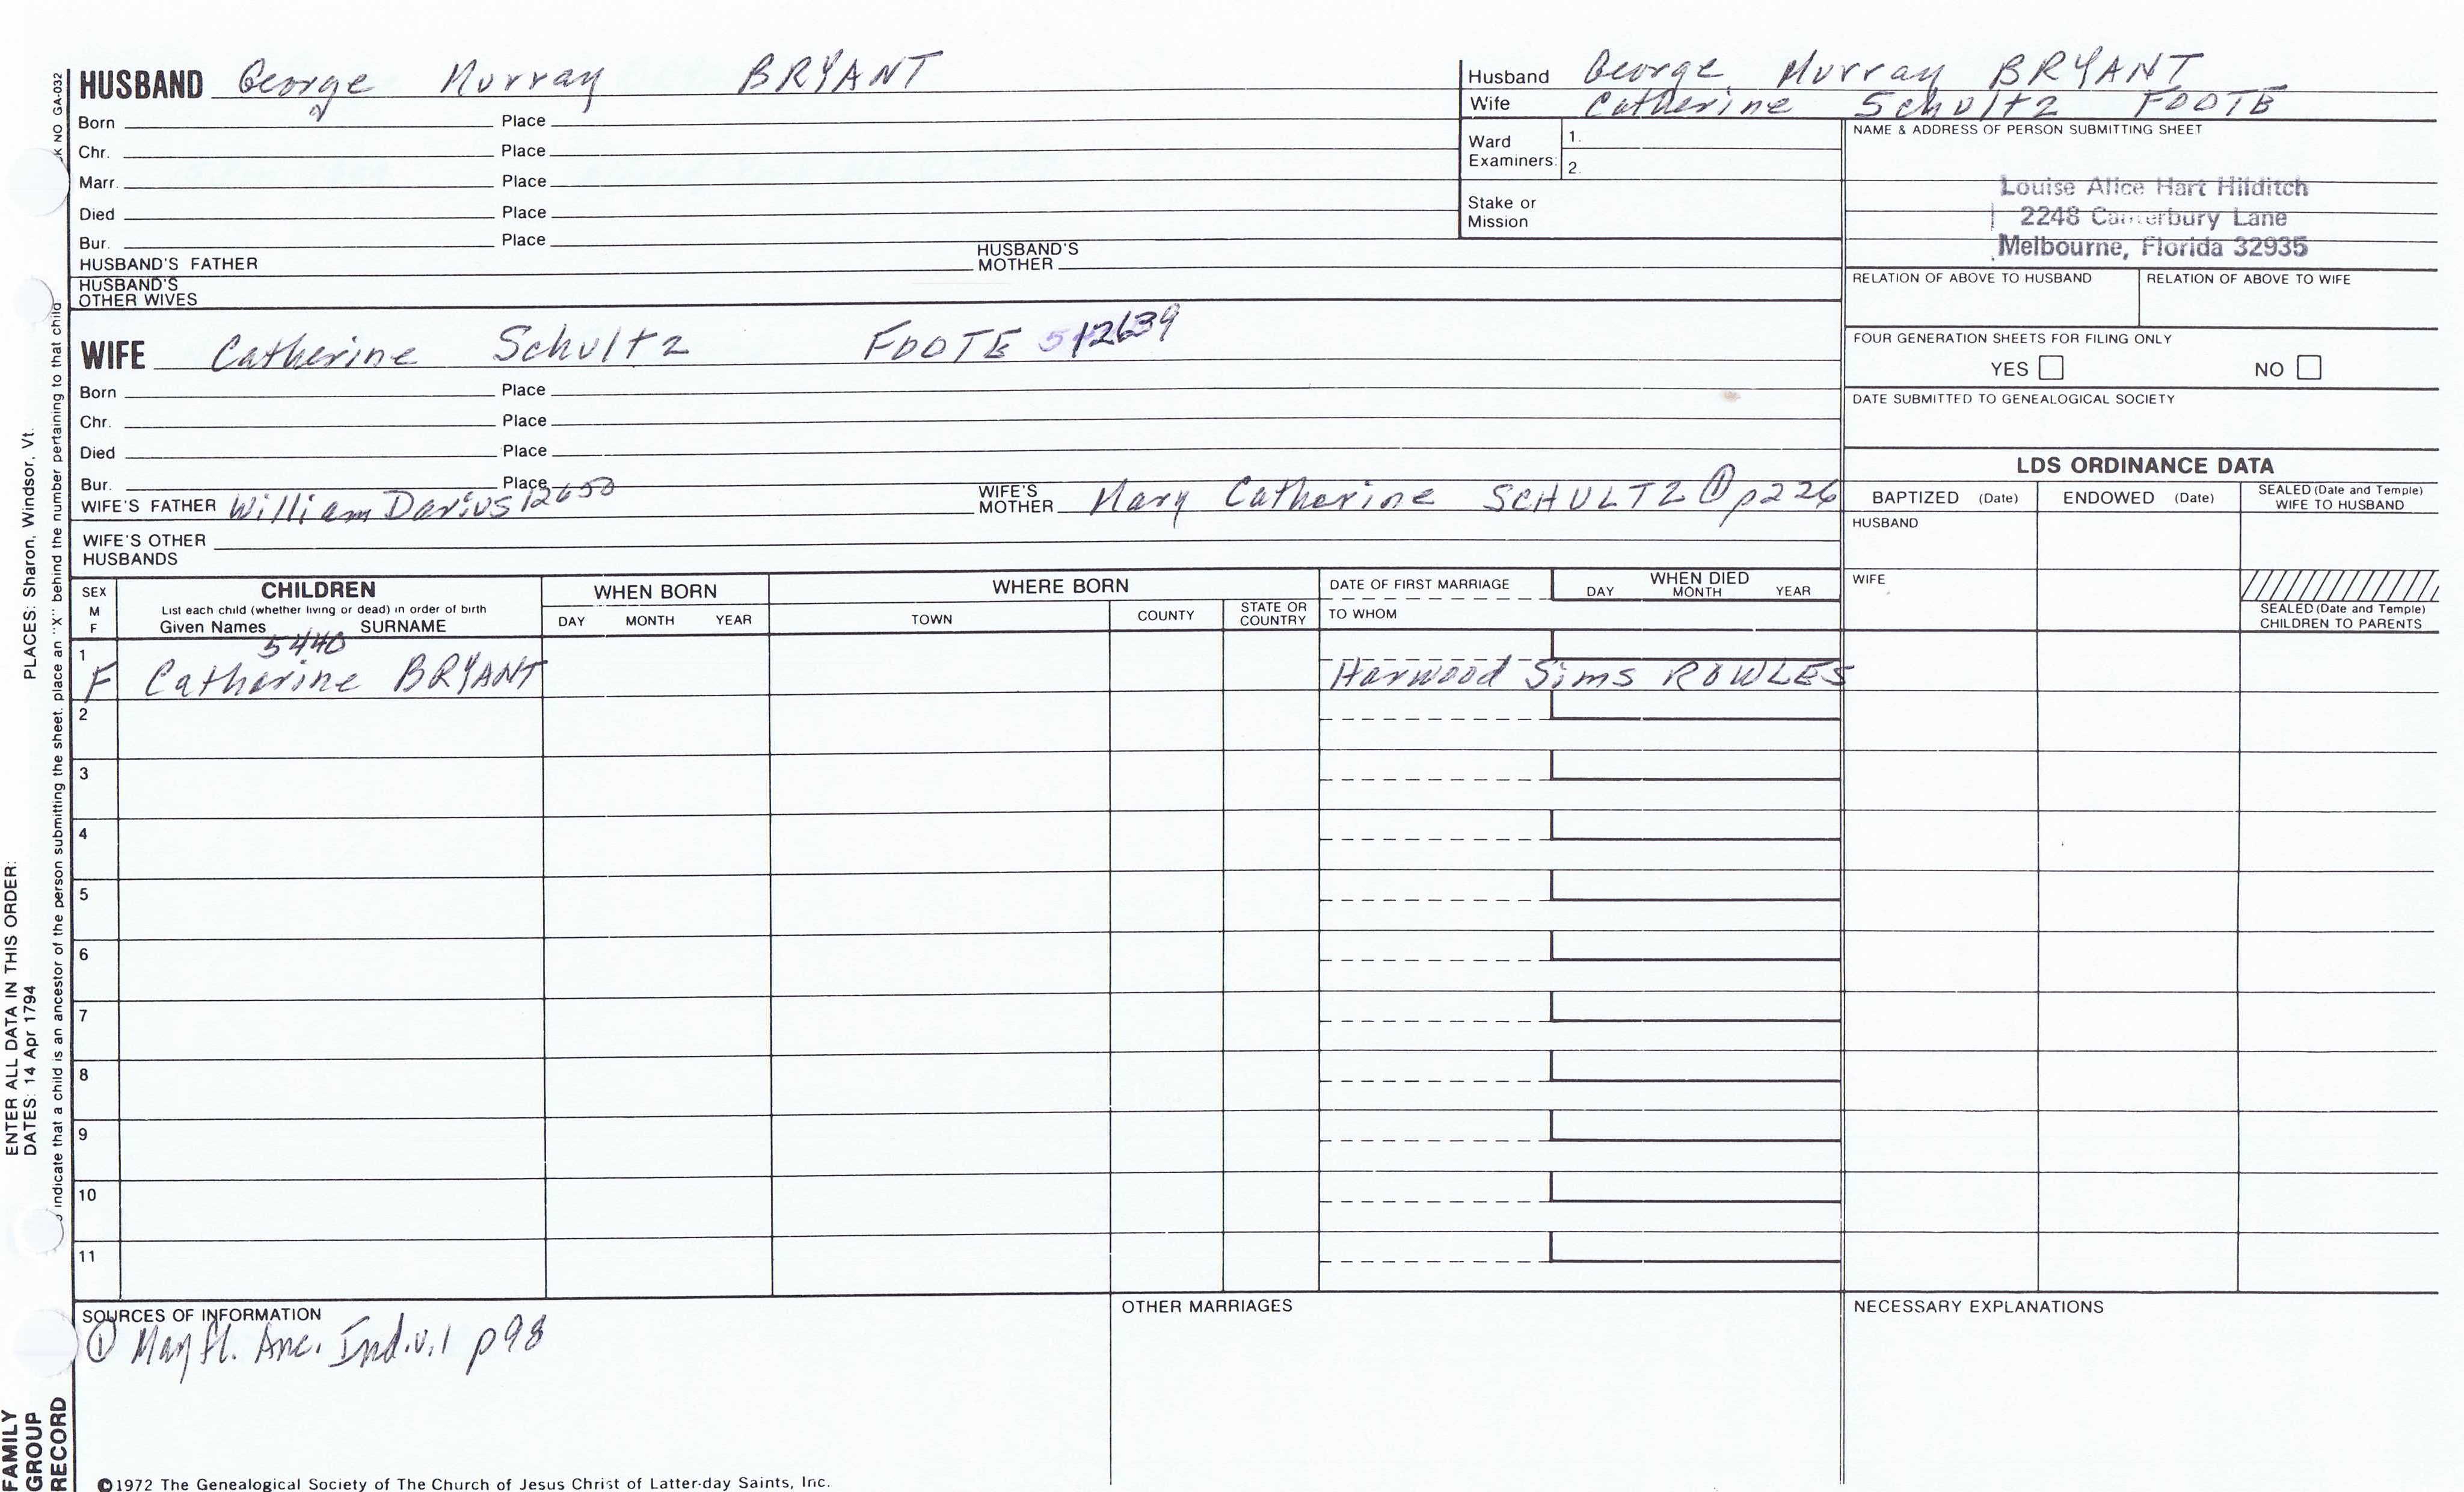 HUSBAND George Murray BRYANT
Born Place
Chr. Place
Marr. Place
Died Place
Bur. Place
HUSBAND'S FATHER HUSBAND'S MOTHER
HUSBAND'S OTHER WIVES
Husband George Murray BRYANT
Wife Catherine Schultz FOOTE
Ward Examiners: 1.
2.
Stake or Mission
NAME & ADDRESS OF PERSON SUBMITTING SHEET
Louise Alice Hart Hilditch
2248 Canterbury Lane
Melbourne, Florida 32935
RELATION OF ABOVE TO HUSBAND RELATION OF ABOVE TO WIFE
FOUR GENERATION SHEETS FOR FILING ONLY
YES NO
DATE SUBMITTED TO GENEALOGICAL SOCIETY
WIFE Catherine Schultz FOOTE 12639
Born Place
Chr. Place
Died Place
Bur. Place
WIFE'S FATHER William Darius 12650 WIFE'S MOTHER Mary Catherine SCHULTZ ① p226
WIFE'S OTHER HUSBANDS
LDS ORDINANCE DATA
BAPTIZED (Date) ENDOWED (Date) SEALED (Date and Temple) WIFE TO HUSBAND
HUSBAND
WIFE
SEALED (Date and Temple) CHILDREN TO PARENTS
SEX M F
CHILDREN
List each child (whether living or dead) in order of birth
Given Names SURNAME
WHEN BORN
DAY MONTH YEAR
WHERE BORN
TOWN COUNTY STATE OR COUNTRY
DATE OF FIRST MARRIAGE
TO WHOM
WHEN DIED
DAY MONTH YEAR
5440
1 F Catherine BRYANT Harwood Sims ROWLES
2
3
4
5
6
7
8
9
10
11
SOURCES OF INFORMATION
① Mayfl. Anc. Ind. v. 1 p98
OTHER MARRIAGES
NECESSARY EXPLANATIONS
©1972 The Genealogical Society of The Church of Jesus Christ of Latter-day Saints, Inc.
FAMILY GROUP RECORD
ENTER ALL DATA IN THIS ORDER:
DATES: 14 Apr 1794 PLACES: Sharon, Windsor, Vt.
indicate that a child is an ancestor of the person submitting the sheet, place an "X" behind the number pertaining to that child
K NO GA-032